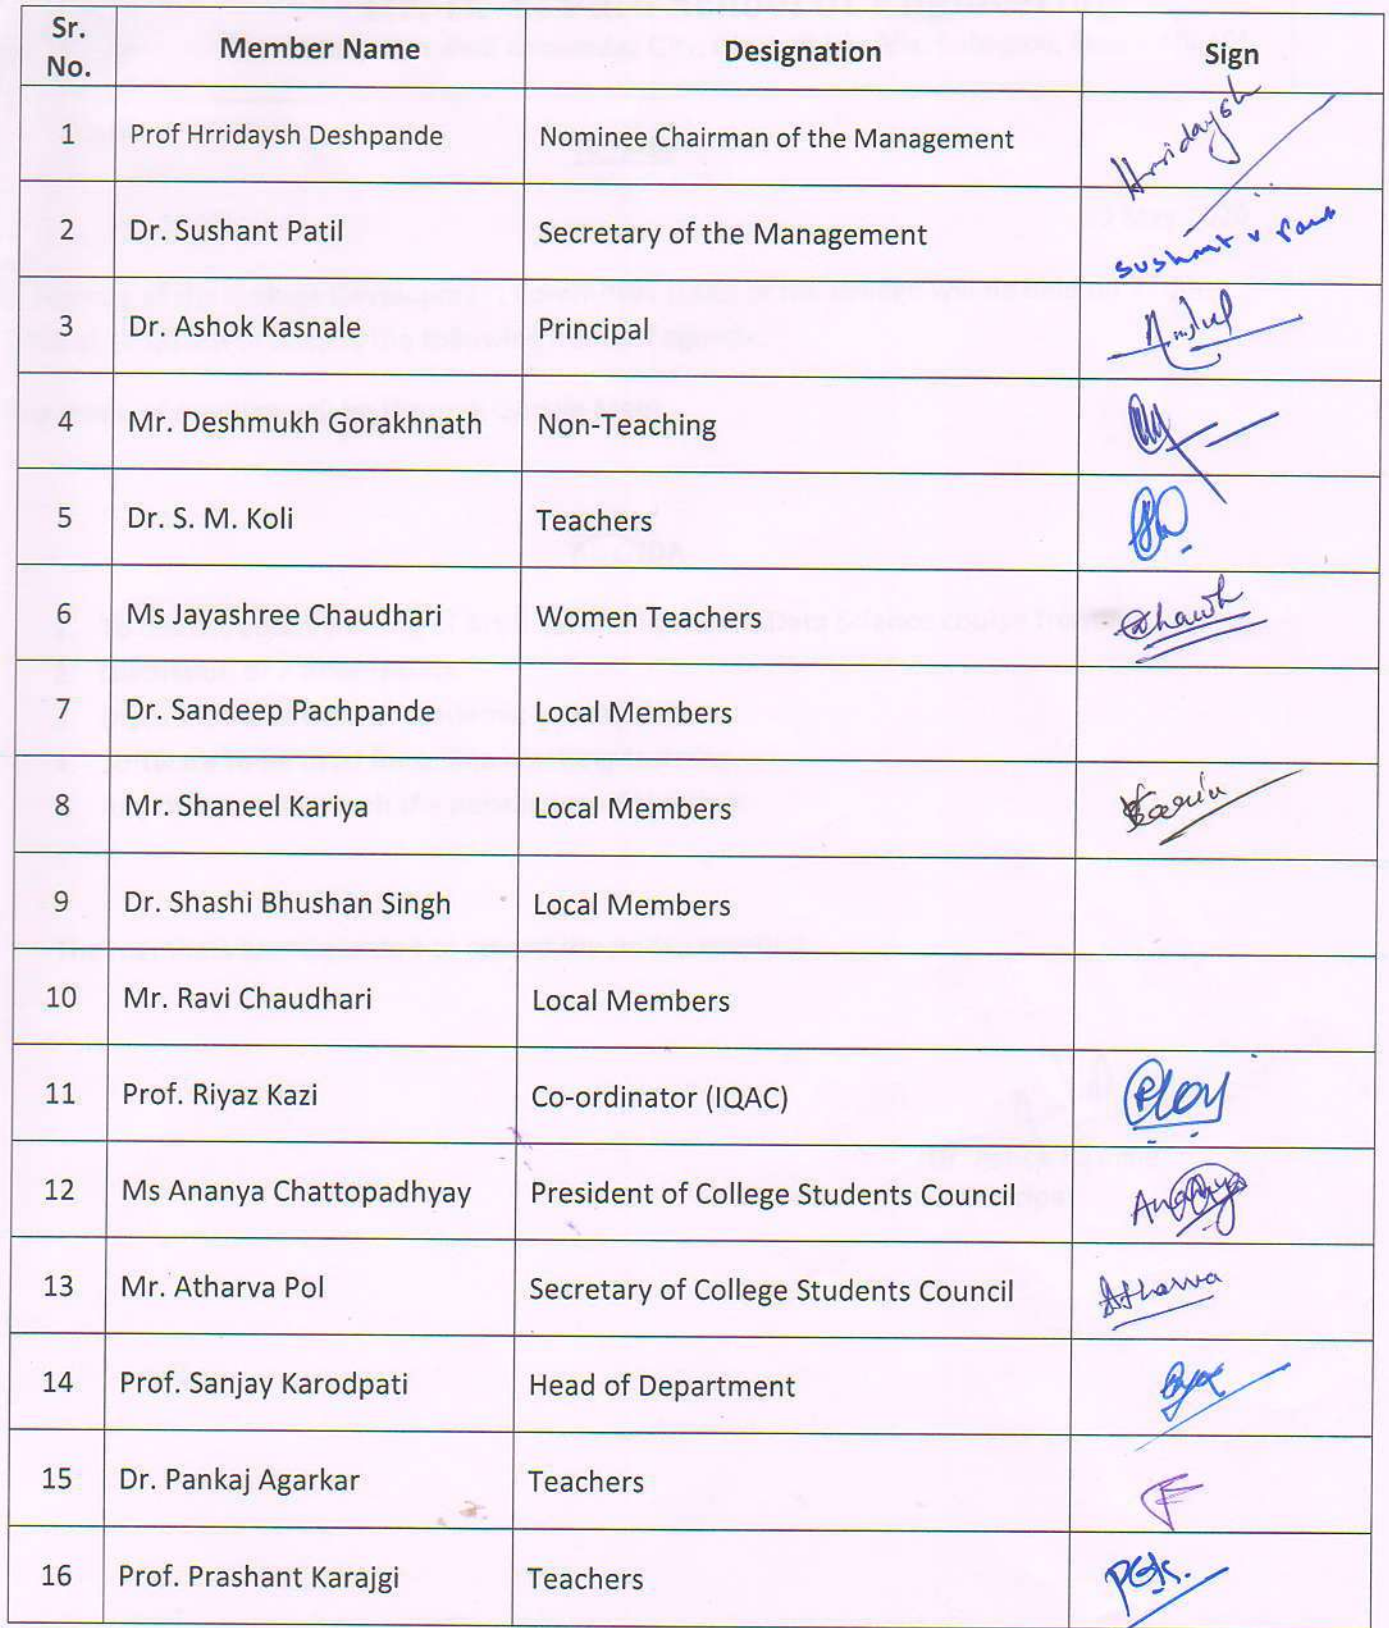 Sr. No. Member Name Designation Sign
1 Prof Hrridaysh Deshpande Nominee Chairman of the Management Hrridaysh
2 Dr. Sushant Patil Secretary of the Management sushant v
3 Dr. Ashok Kasnale Principal
4 Mr. Deshmukh Gorakhnath Non-Teaching
5 Dr. S. M. Koli Teachers
6 Ms Jayashree Chaudhari Women Teachers
7 Dr. Sandeep Pachpande Local Members
8 Mr. Shaneel Kariya Local Members
9 Dr. Shashi Bhushan Singh Local Members
10 Mr. Ravi Chaudhari Local Members
11 Prof. Riyaz Kazi Co-ordinator (IQAC)
12 Ms Ananya Chattopadhyay President of College Students Council
13 Mr. Atharva Pol Secretary of College Students Council Atharva
14 Prof. Sanjay Karodpati Head of Department
15 Dr. Pankaj Agarkar Teachers
16 Prof. Prashant Karajgi Teachers